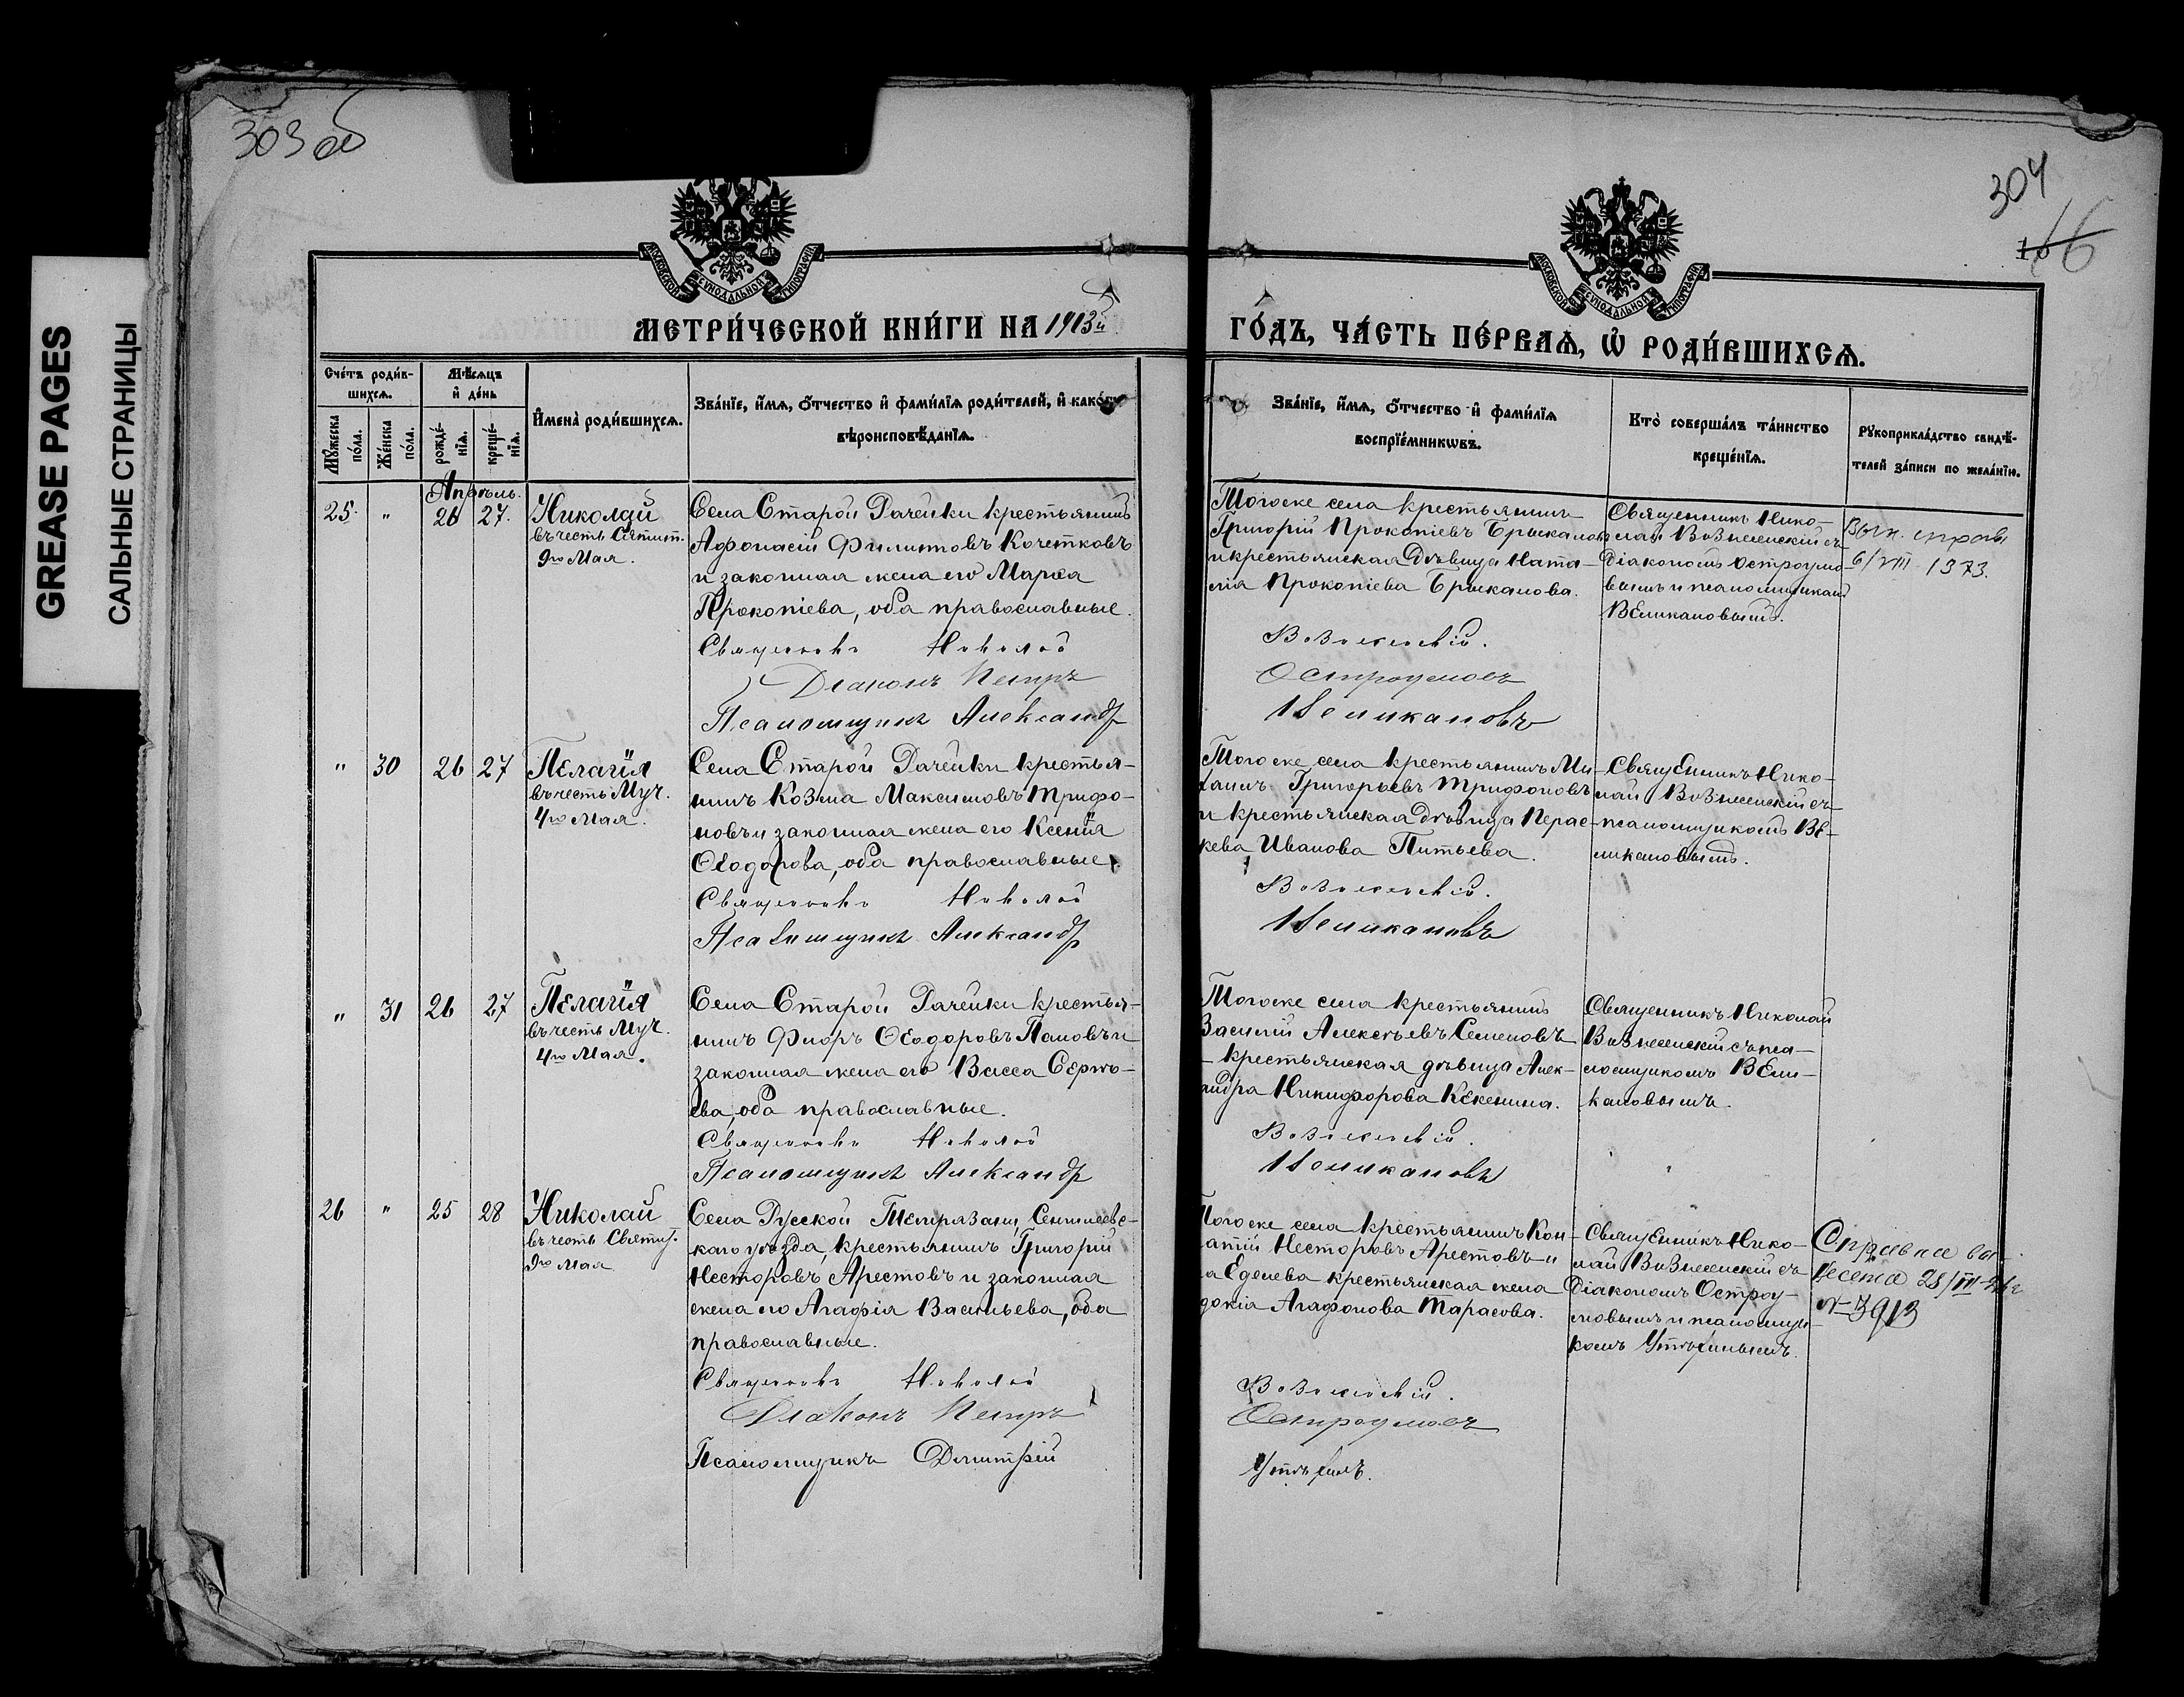 GREASE PAGES
САЛЬНЫЕ СТРАНИЦЫ
303 об
304
16
МОСКОВСКОЙ СѴНОДАЛЬНОЙ ТИПОГРАФІИ
МОСКОВСКОЙ СѴНОДАЛЬНОЙ ТИПОГРАФІИ
МЕТРИ́ЧЕСКОЙ КНИ́ГИ НА 1913й
ГО́ДЪ, ЧА́СТЬ ПЕ́РВАѦ, Ѡ҆ РОДИ́ВШИХСѦ.
Сче́тъ роди́в-
шихсѧ.
Мꙋ́жеска по́ла.
Же́нска по́ла.
Мѣ́сѧцъ
и҆ де́нь
рожде́-
нїѧ.
креще́-
нїѧ.
И҆мена̀ роди́вшихсѧ.
Зва́нїе, и҆́мѧ, ѻ҆́тчество и҆ фами́лїѧ роди́телей, и҆ како́гѡ
вѣроисповѣ́данїѧ.
Зва́нїе, и҆́мѧ, ѻ҆́тчество и҆ фами́лїѧ
воспрїе́мникѡвъ.
Кто̀ соверша́лъ та́инство
креще́нїѧ.
Рꙋкоприкла́дство свидѣ́-
телей за́писи по жела́нїю.
Апрѣль.
25. " 26 27.
Николай
въ честь Святит.
9го Мая.
Села Старой Рачейки крестьянинъ
Афонасій Филиповъ Кочетковъ
и законная жена его Марѳа
Прокопіева, оба православные.
Священникъ Николай
Діаконъ Петръ
Псаломщикъ Александр
Того же села крестьянинъ
Григорій Прокопіевъ Брыкановъ
и крестьянская Дѣвица Ната-
лія Прокопіева Брыканова.
Вознесенскій.
Остроумовъ
Великановъ
Священникъ Нико-
лай Вознесенскій съ
Діакономъ Остроумо-
вымъ и псаломщикомъ
Великановымъ.
6/VIII 1973.
" 30 26 27
Пелагія
въ честь Муч.
4го Мая.
Села Старой Рачейки крестья-
нинъ Козма Максимовъ Трифо-
новъ и законная жена его Ксенія
Ѳеодорова, оба православные.
Священникъ Николай
Псаломщикъ Александр
Того же села крестьянинъ Ми-
хаилъ Григорьевъ Трифоновъ
и крестьянская дѣвица Парас-
кева Иванова Питьева.
Вознесенскій.
Великановъ
Священникъ Нико-
лай Вознесенскій съ
псаломщикомъ Ве-
ликановымъ.
" 31 26 27
Пелагія
въ честь Муч.
4го Мая.
Села Старой Рачейки крестья-
нинъ Флоръ Ѳеодоровъ Пановъ и
законная жена его Васса Сергѣ-
ева, оба православные.
Священникъ Николай
Псаломщикъ Александр
Того же села крестьянинъ
Василій Алексѣевъ Семеновъ
крестьянская дѣвица Алек-
андра Никифорова Кекенина.
Вознесенскій.
Великановъ
Священникъ Николай
Вознесенскій съ пса-
ломщикомъ Вели-
кановымъ.
26 " 25 28
Николай
въ честь Святит.
9го мая
Села Русской Темрязани, Сенгилеевс-
каго уѣзда, крестьянинъ Григорій
Несторовъ Арестовъ и законная
жена его Агафія Васильева, оба
православные.
Священникъ Николай
Діаконъ Петръ
Псаломщикъ Димитрій
Того же села крестьянинъ Кон-
Несторовъ Арестовъ и
а Еделева крестьянская жена
докія Агафонова Тарасова.
Вознесенскій.
Остроумовъ
Утѣхинъ.
Священникъ Нико-
лай Вознесенскій съ
Діакономъ Остроу-
мовымъ и псаломщи-
комъ Утѣхинымъ.
Справка
28/III
№ 3913